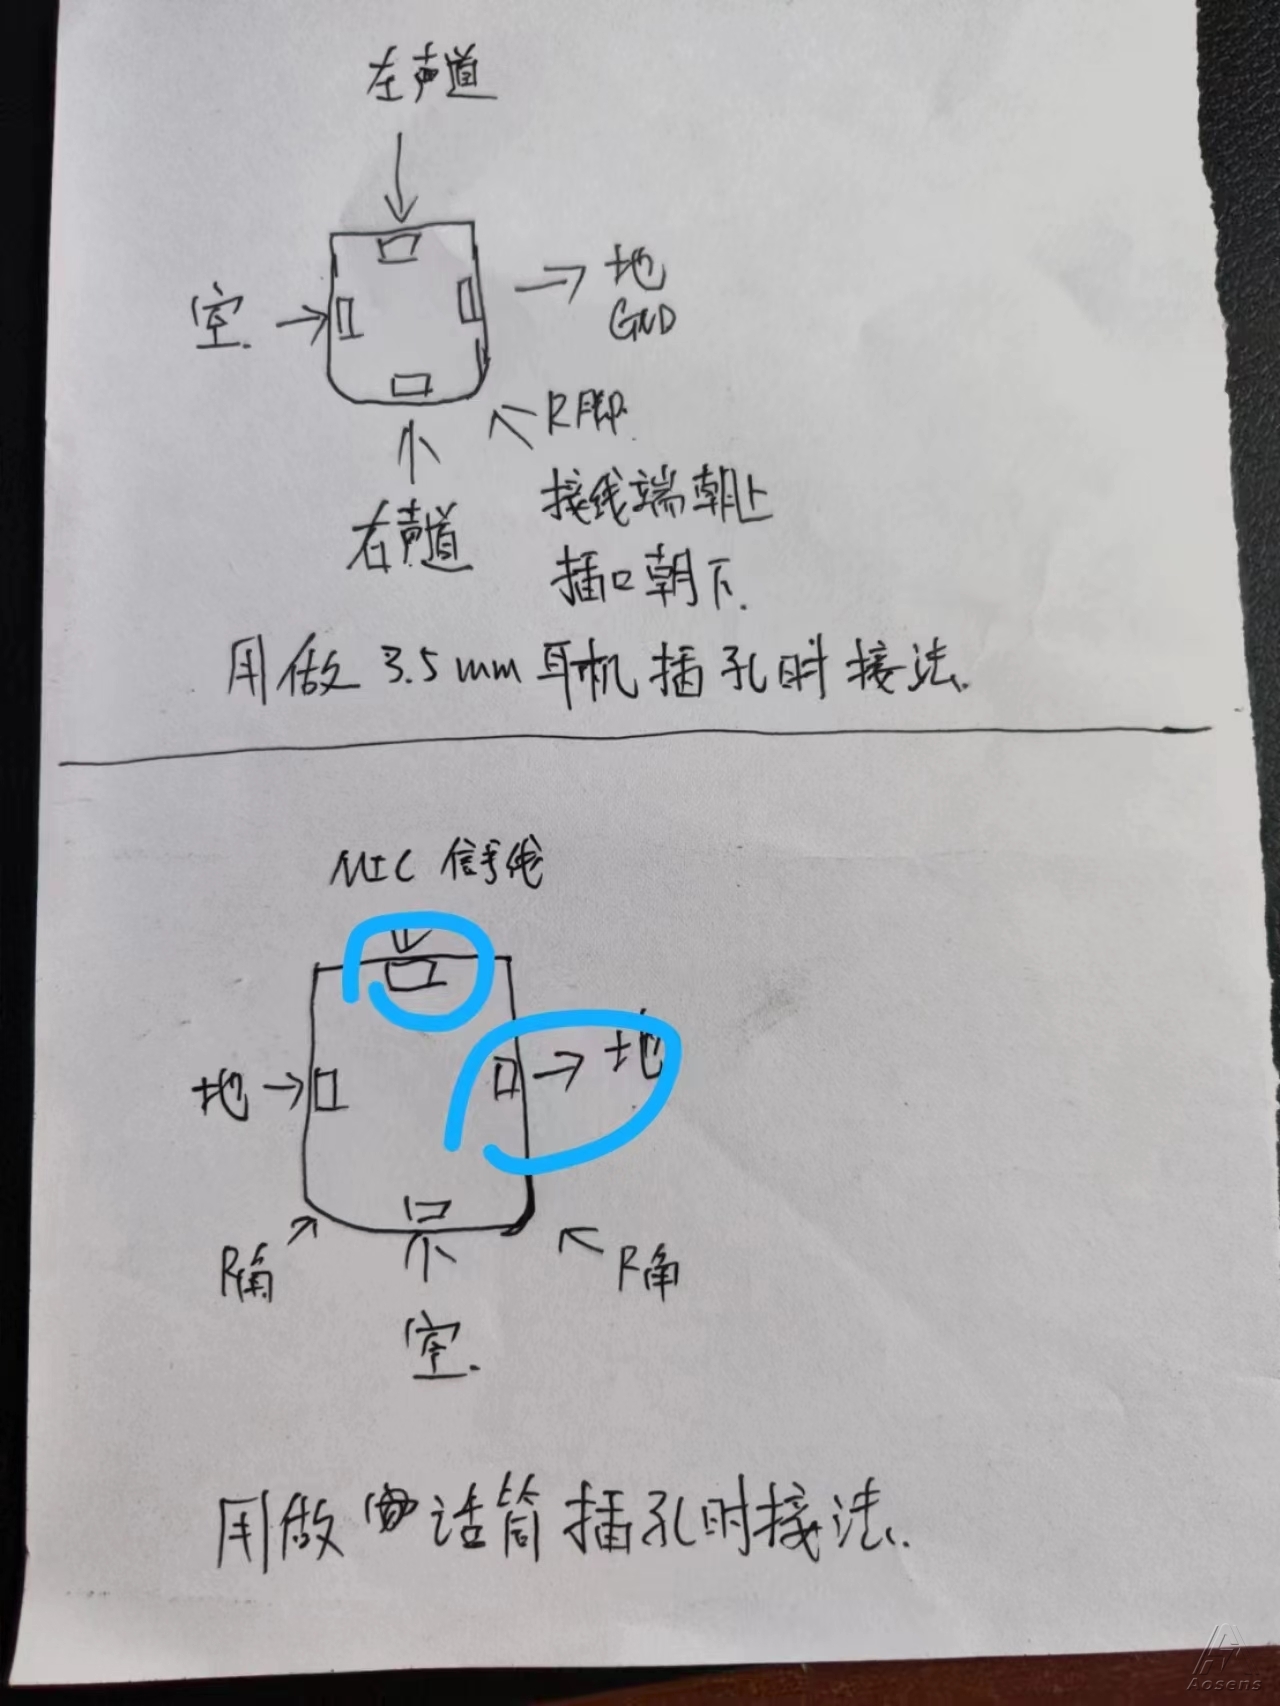 左声道
空.
地
GND
R脚.
右声道
接线端朝上
插口朝下.
用做 3.5mm 耳机 插孔时接法.
MIC 信号线
地
地
R角
R角
空.
用做 话筒 插孔时接法.
Aosens